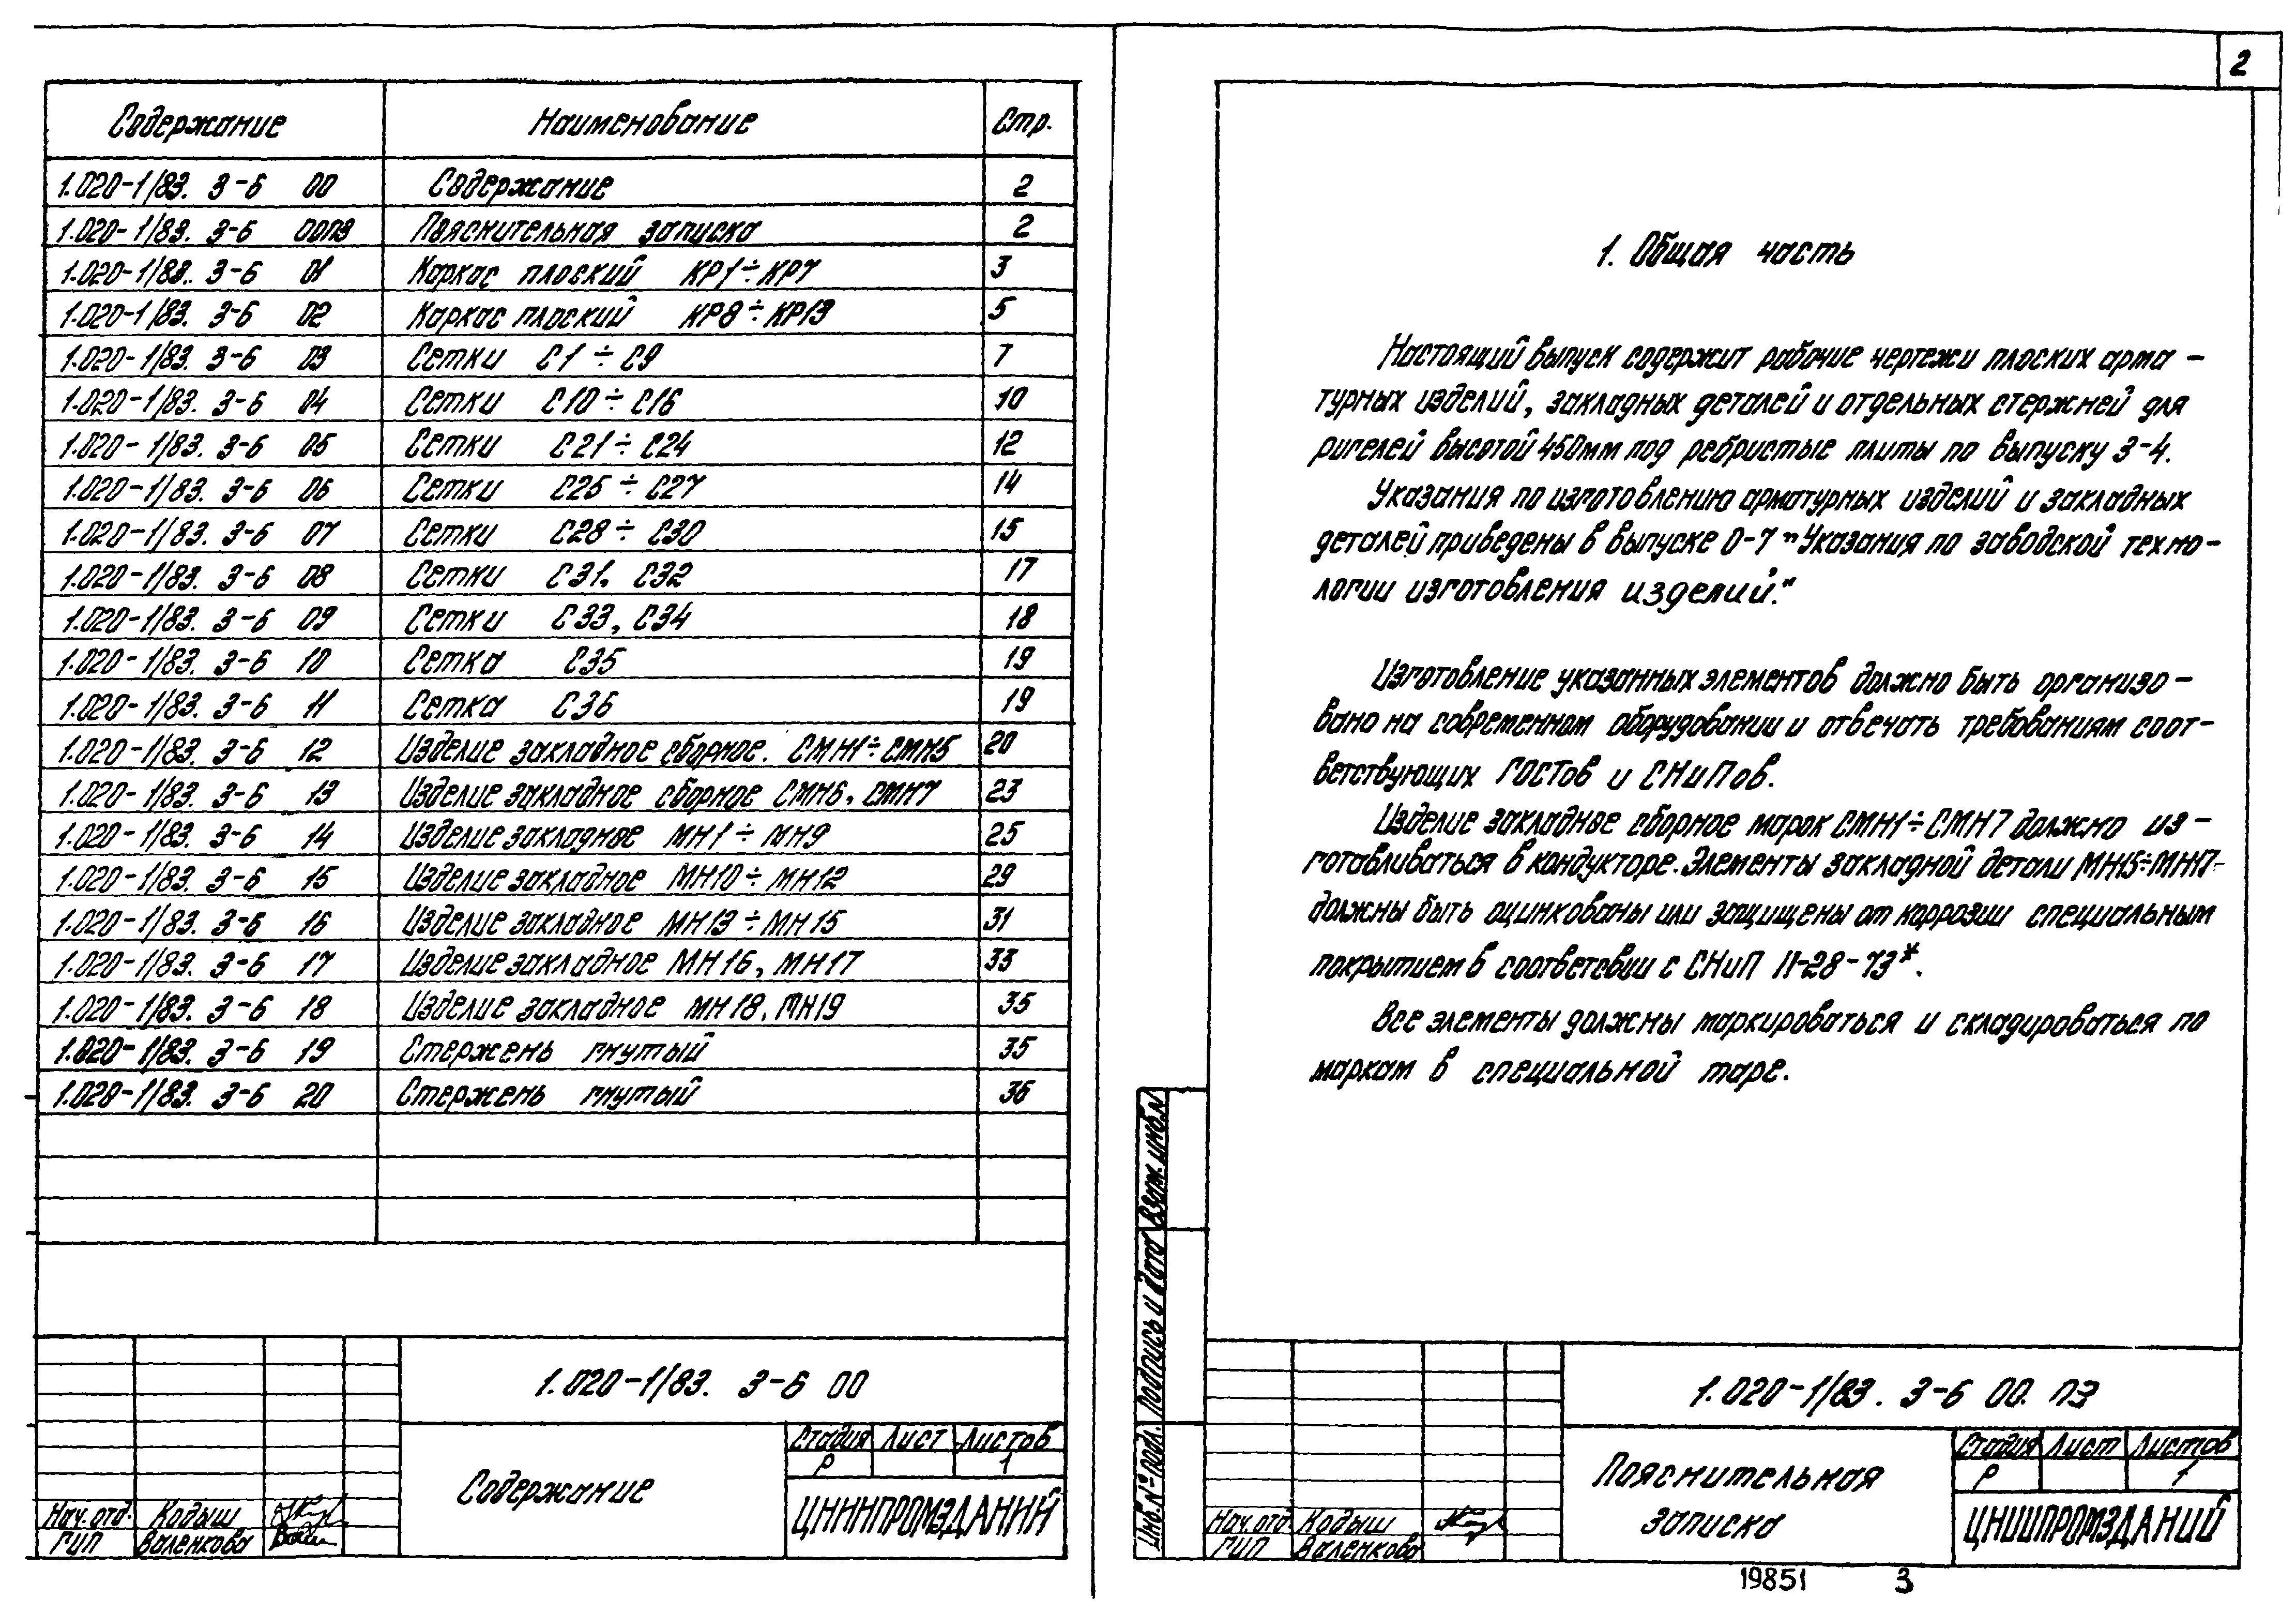 Содержание Наименование Стр.
1.020-1/83. 3-6 00 Содержание 2
1.020-1/83. 3-6 00ПЗ Пояснительная записка 2
1.020-1/83. 3-6 01 Каркас плоский КР1÷КР7 3
1.020-1/83. 3-6 02 Каркас плоский КР8÷КР13 5
1.020-1/83. 3-6 03 Сетки С1÷С9 7
1.020-1/83. 3-6 04 Сетки С10÷С16 10
1.020-1/83. 3-6 05 Сетки С21÷С24 12
1.020-1/83. 3-6 06 Сетки С25÷С27 14
1.020-1/83. 3-6 07 Сетки С28÷С30 15
1.020-1/83. 3-6 08 Сетки С31, С32 17
1.020-1/83. 3-6 09 Сетки С33, С34 18
1.020-1/83. 3-6 10 Сетка С35 19
1.020-1/83. 3-6 11 Сетка С36 19
1.020-1/83. 3-6 12 Изделие закладное сборное. СМН1÷СМН5 20
1.020-1/83. 3-6 13 Изделие закладное сборное СМН6, СМН7 23
1.020-1/83. 3-6 14 Изделие закладное МН1÷МН9 25
1.020-1/83. 3-6 15 Изделие закладное МН10÷МН12 29
1.020-1/83. 3-6 16 Изделие закладное МН13÷МН15 31
1.020-1/83. 3-6 17 Изделие закладное МН16, МН17 33
1.020-1/83. 3-6 18 Изделие закладное МН18, МН19 35
1.020-1/83. 3-6 19 Стержень гнутый 35
1.020-1/83. 3-6 20 Стержень гнутый 36
1.020-1/83. 3-6 00
Содержание
Стадия Лист Листов
Р 1
ЦНИИПРОМЗДАНИЙ
Нач.отд. Кодыш
ГИП Валенкова
2
1. Общая часть
Настоящий выпуск содержит рабочие чертежи плоских арма-
турных изделий, закладных деталей и отдельных стержней для
ригелей высотой 450мм под ребристые плиты по выпуску 3-4.
Указания по изготовлению арматурных изделий и закладных
деталей приведены в выпуске 0-7 "Указания по заводской техно-
логии изготовления изделий."
Изготовление указанных элементов должно быть организо-
вано на современном оборудовании и отвечать требованиям соот-
ветствующих ГОСТов и СНиПов.
Изделие закладное сборное марок СМН1÷СМН7 должно из-
готавливаться в кондукторе. Элементы закладной детали МН15÷МН17
должны быть оцинкованы или защищены от коррозии специальным
покрытием в соответсвии с СНиП II-28-73*.
Все элементы должны маркироваться и складироваться по
маркам в специальной таре.
Инв.№ подл. Подпись и дата Взам. инв.№
1.020-1/83. 3-6 00. ПЗ
Пояснительная
записка
Стадия Лист Листов
Р 1
ЦНИИПРОМЗДАНИЙ
Нач.отд. Кодыш
ГИП Валенкова
19851 3